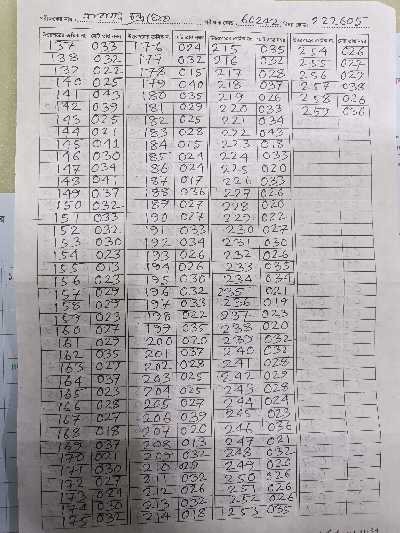 137 033 176 024 215 035 254 026
138 032 177 032 216 032 255 027
139 022 178 015 217 028 256 027
140 025 179 040 218 037 257 038
141 043 180 035 219 026 258 036
142 039 181 029 220 033 259 036
143 025 182 025 221 034
144 021 183 028 222 043
145 041 184 015 223 018
146 030 185 024 224 033
147 034 186 024 225 020
148 041 187 017 226 033
149 037 188 036 227 026
150 032 189 027 228 020
151 033 190 027 229 022
152 032 191 033 230 027
153 030 192 034 231 030
154 023 193 026 232 026
155 013 194 026 233 033
156 023 195 036 234 024
157 029 196 032 235 021
158 029 197 033 236 019
159 023 198 022 237 023
160 027 199 035 238 020
161 029 200 020 239 032
162 035 201 037 240 032
163 027 202 028 241 028
164 037 203 025 242 029
165 023 204 025 243 028
166 028 205 027 244 024
167 027 206 039 245 023
168 018 207 020 246 036
169 037 208 013 247 021
170 021 209 032 248 032
171 030 210 029 249 026
172 027 211 032 250 026
173 024 212 026 251 026
174 030 213 032 252 026
175 032 214 018 253 035